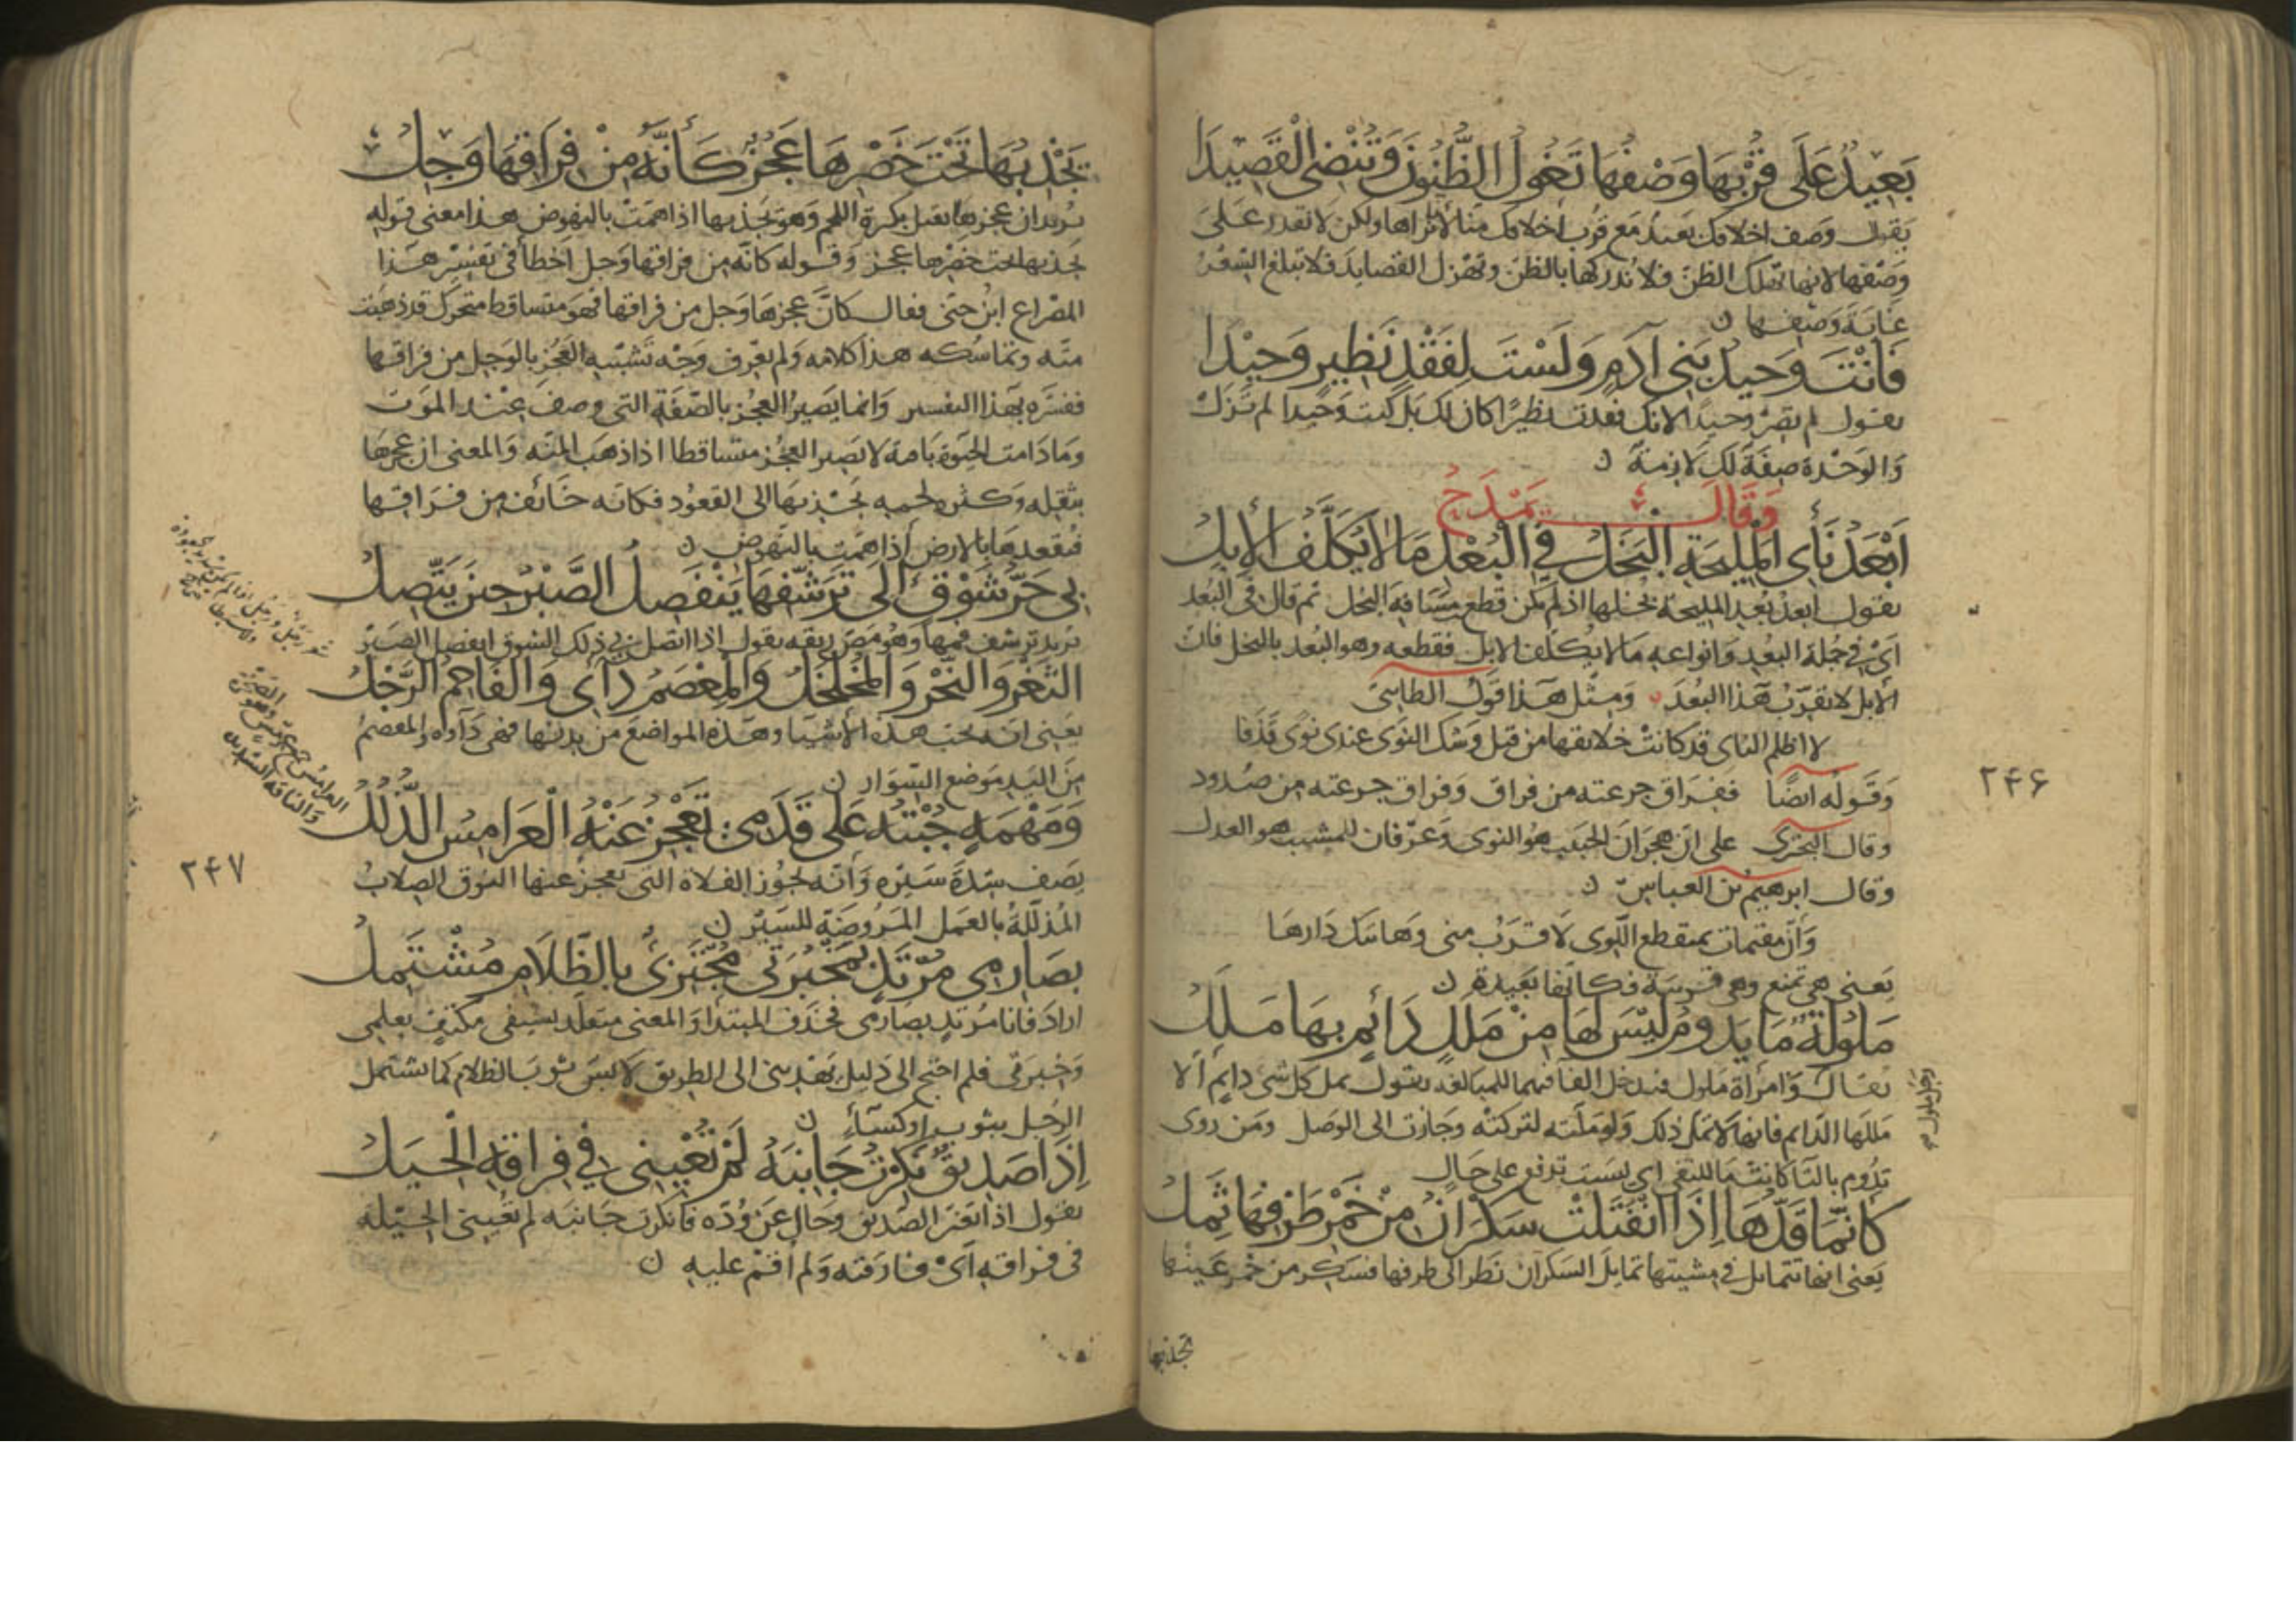 بَعِيدٌ عَلَى قُرْبِهَا وَصْفُهَا تَغُولُ الظُّنُونَ وَتُنْضِى الْقَصِيدَا
يقول وصف اخلاقك بعيد مع قرب اخلاقك منا لانا نراها ولكن لا نقدر على
وصفها لانها تهلك الظن فلا ندركها بالظن وتهزل القصايد فلا تبلغ الشعر
غاية وصفها ن
فَأَنْتَ وَحِيدُ بَنِى آدَمٍ وَلَسْتَ لِفَقْدِ نَظِيرٍ وَحِيْدَا
يقول لم تصر وحيدا لانك فقدت نظيرًا كان لك بل كنت وحيدا لم تزل
والوحدة صفة لك لازمة ن
وَقَالَ يَمْدَحُ
أَبْعَدُ نَأْىِ الْمَلِيحَةِ الْبَخَلُ فِى الْبُعْدِ مَا لَا تُكَلَّفُ الْإِبِلُ
يقول ابعد بُعد المليحة بخلها اذ لم يمكن قطع مسافة البخل ثم قال فى البُعد
اى فى جملة البعد وانواعه ما لا يكلف الابل فقطعه وهو البُعد بالبخل فان
الابل لا تقرب هذا البُعد ومثل هذا قول الطاءى
لا اظلم الناى قد كانت خلايقها من قبل وشك النوى عندى نوى قذفا
وقوله ايضًا ففراق جرعته من فراق وفراق جرعته من صدود
وقال البحترى على ان هجران الحبيب هو النوى وعرفان للمشيب هو العدل
وقال ابرهيم بن العباس ن
وان مقيمات بمنقطع اللوى لاقرب منى وهاتيك دارها
يعنى هى تمنع وهى قريبة فكانها بعيدة ن
مَلُولَةٌ مَا يَدُومُ لَيْسَ لَهَا مِنْ مَلَلٍ دَائِمٍ بِهَا مَلَلُ
يقال وامراة ملول فيدخل الها فيهما للمبالغة يقول تمل كل شى دايم الا
رجل ملول
مللها الدايم فانها لا تمل ذلك ولو ملته لتركته وجازت الى الوصل ومن روى
تدوم بالتا كانت ما للنفى اى ليست تدوم على حال
كَأَنَّمَا قَدُّهَا إِذَا انْفَتَلَتْ سَكْرَانُ مِنْ خَمْرِ طَرْفِهَا ثَمِلُ
يعنى انها تتمايل فى مشيتها تمايل السكران نظر الى طرفها فسكر من خمر عينها
تجذبها
٢٤۶
يَجْذِبُهَا تَحْتَ خَصْرِهَا عَجُزٌ كَأَنَّهُ مِنْ فِرَاقِهَا وَجِلُ
يريد ان عجزها ثقيل بكثرة اللحم وهو يجذبها اذا همت بالنهوض هذا معنى قوله
يجذبها تحت خصرها عجز وقوله كانه من فراقها وجل اخطأ فى تفسير هذا
المصراع ابن جنى فقال كان عجزها وجل من فراقها فهو متساقط متحرك قد ذهبت
منته وتماسكه هذا كلامه ولم يعرف وجه تشبيه العجز بالوجل من فراقها
ففسره بهذا التفسير وانما يصير العجز بالصفة التى وصف عند الموت
وما دامت الحيوة باقية لا يصير العجز متساقطا اذا ذهب المنه والمعنى ان عجزها
بثقله وكثرة لحمه يجذبها الى القعود فكانه خائف من فراقها
فيقعدها بالارض اذا همت بالنهوض ن
بِى حَرُّ شَوْقٍ إِلَى تَرَشُّفِهَا يَنْفَصِلُ الصَّبْرُ حِيْنَ يَتَّصِلُ
يريد ترشف فمها وهو مص ريقه يقول اذا اتصل بى ذلك الشوق انفصل الصبر
الثَّغْرُ وَالنَّحْرُ وَالْمُخَلْخَلُ وَالْمِعْصَمُ دَآئِى وَالْفَاحِمُ الرَّجِلُ
يعنى انه يحب هذه الاشيا وهذه المواضع من بدنها فهى دآوه والمعصم
من اليد موضع السوار ن
وَمَهْمَهٍ جُبْتُهُ عَلَى قَدَمِى تَعْجِزُ عَنْهُ الْعَرَامِسُ الذُّلُلُ
يصف شدة سيره وانه يجوز الفلاة التى تعجز عنها النوق الصلاب
المذللة بالعمل المروضة للسير ن
بِصَارِمِى مُرْتَدٍ بِمَخْبَرَتِى مُجْتَزِئٌ بِالظَّلَامِ مُشْتَمِلُ
اراد فانا مرتد بصارمى فحذف المبتدا والمعنى متقلد بسيفى مكتفٍ بعلمى
وخبرتى فلم احتج الى دليل يهدينى الى الطريق لابس ثوب الظلام كما يشتمل
الرجل بثوب او كساء ن
إِذَا صَدِيقٌ نَكِرْتُ جَانِبَهُ لَمْ تُعْيِنِى فِى فِرَاقِهِ الْحِيَلُ
يقول اذا تغير الصديق وحال عن وده فانكرت جانبه لم تعينى الحيلة
فى فراقه اى فارقته ولم اقم عليه ن
العرامس جمع عرمس وهى الصخرة
والناقة الشديدة
٢٤٧